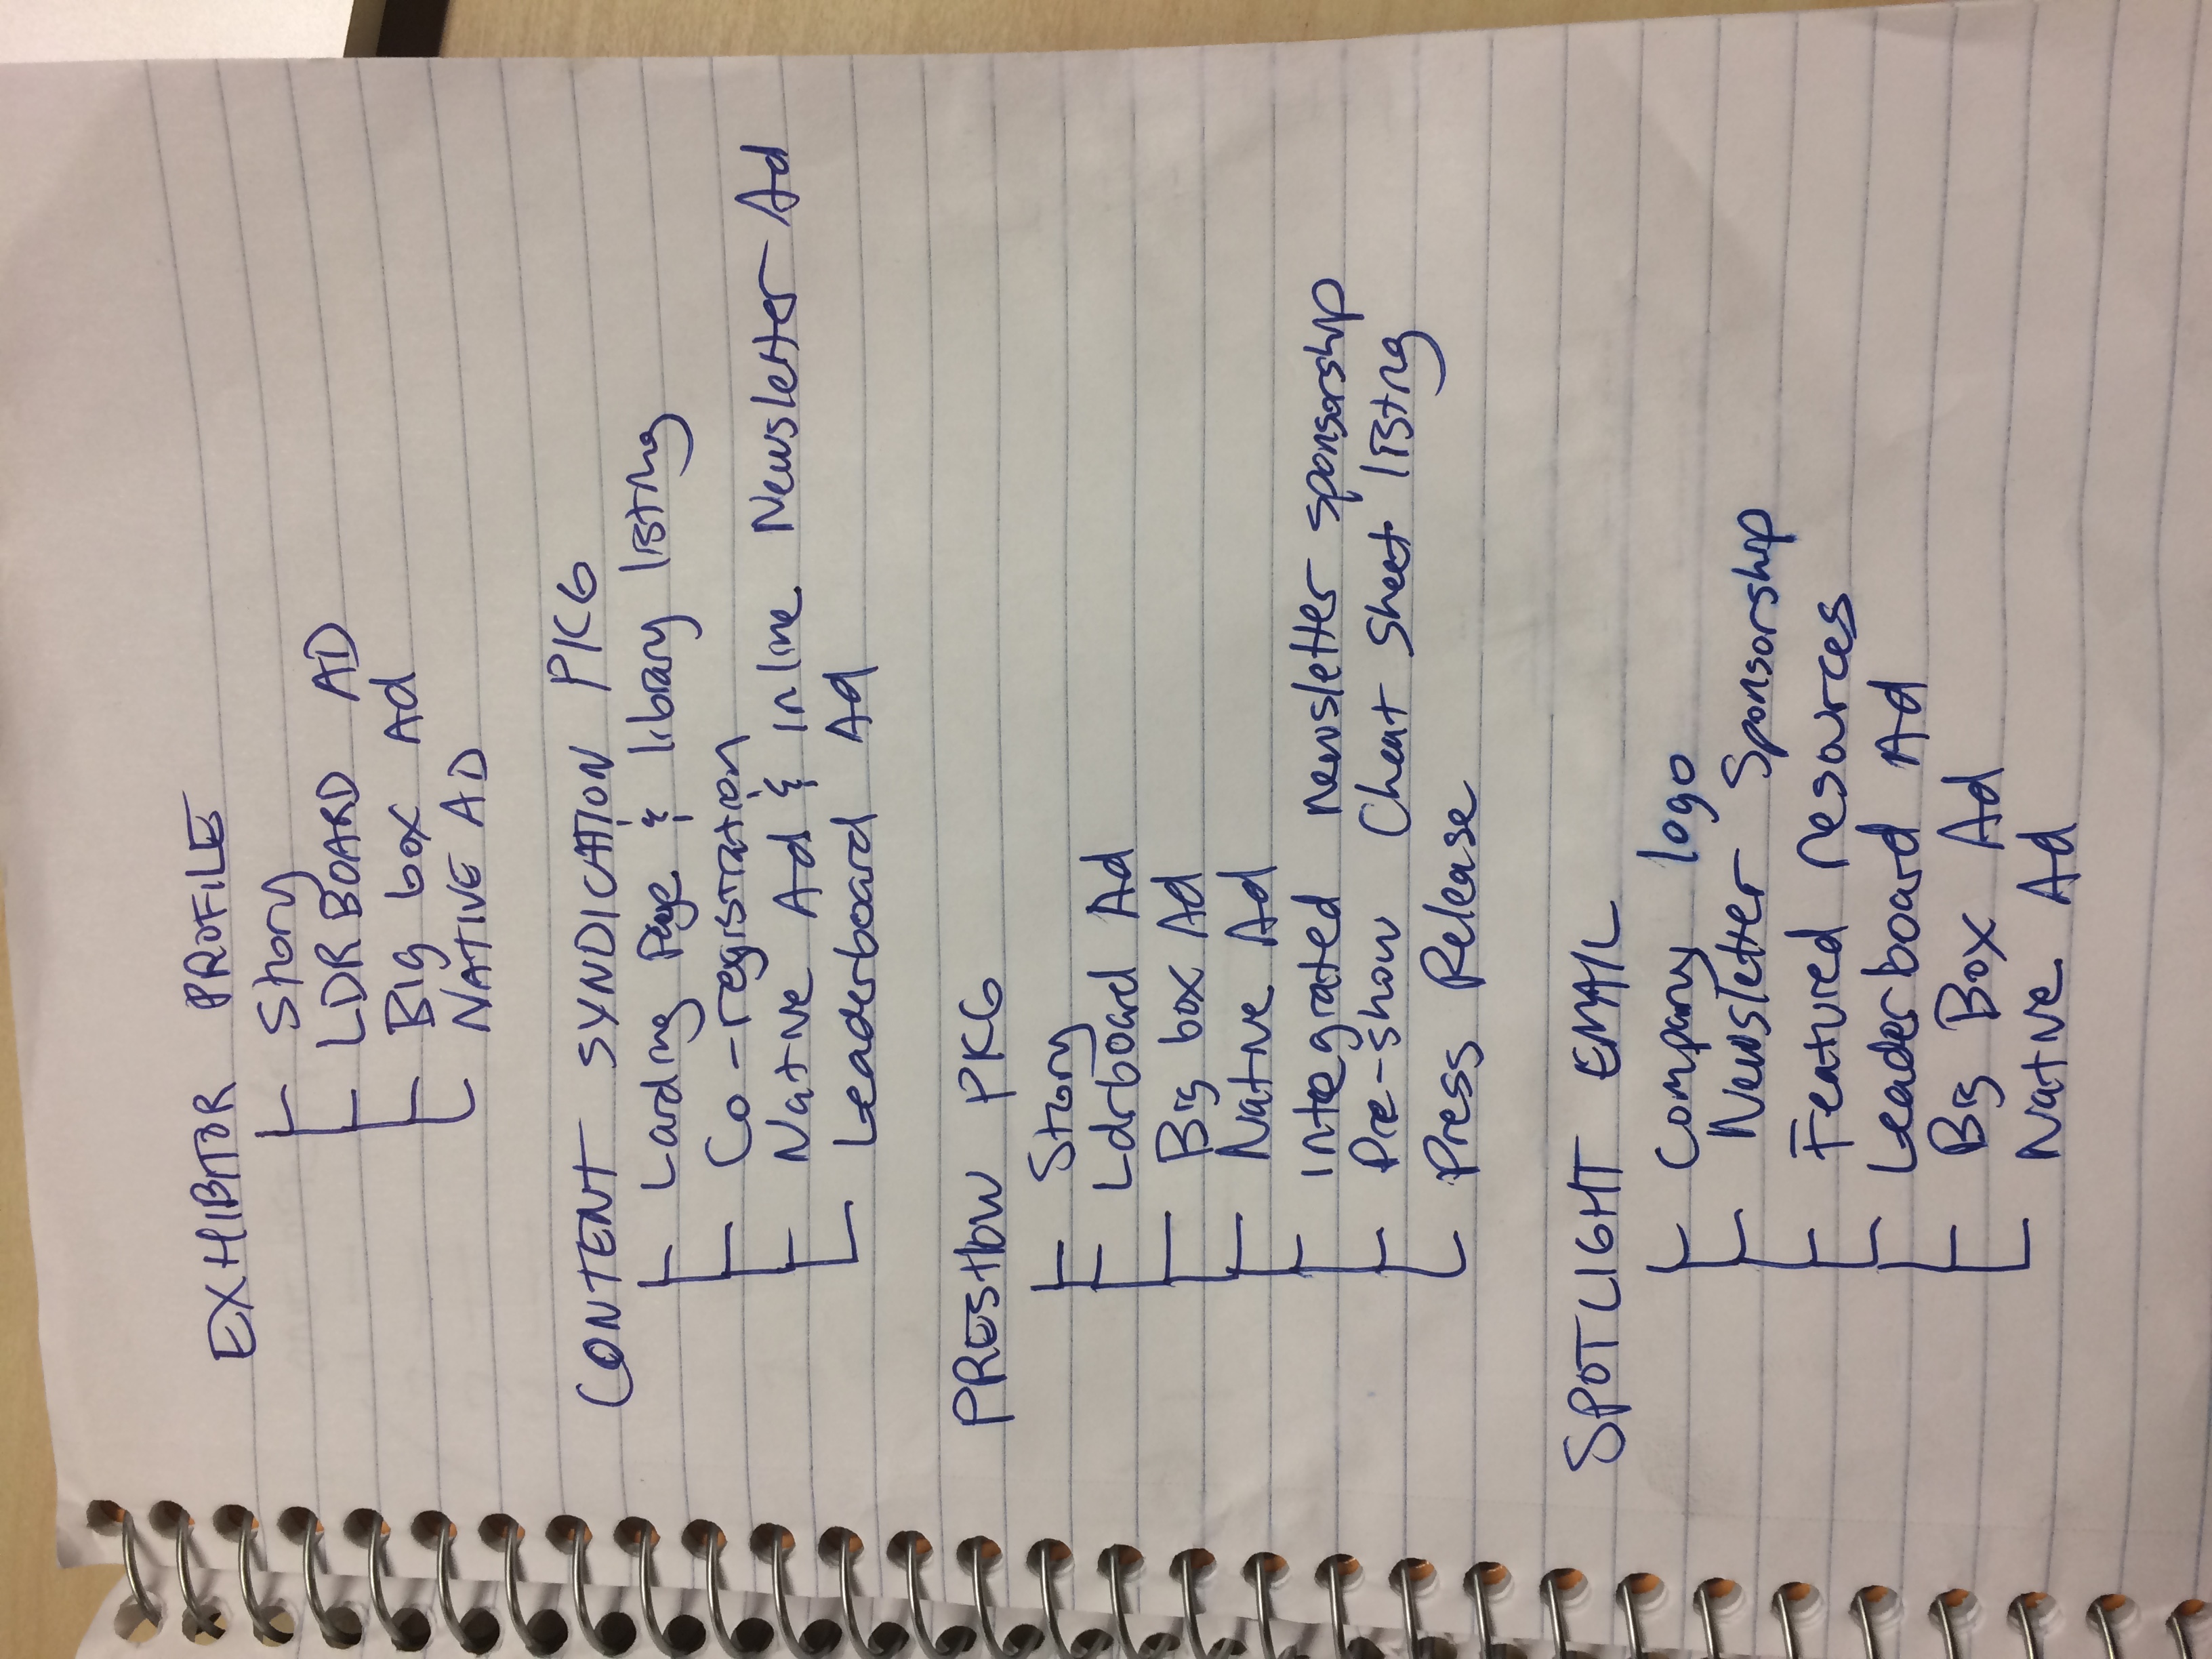 EXHIBITOR PROFILE
Story
LDRBOARD AD
Big box Ad
NATIVE AD
CONTENT SYNDICATION PKG
Landing Page & library listing
Co-registration
Native Ad & inline Newsletter Ad
Leaderboard Ad
PRESHOW PKG
Story
Ldrboard Ad
Big box Ad
Native Ad
Integrated newsletter sponsorship
Pre-show Cheat Sheet listing
Press Release
SPOTLIGHT EMAIL
Company logo
Newsletter Sponsorship
Featured resources
Leaderboard Ad
Big Box Ad
Native Ad